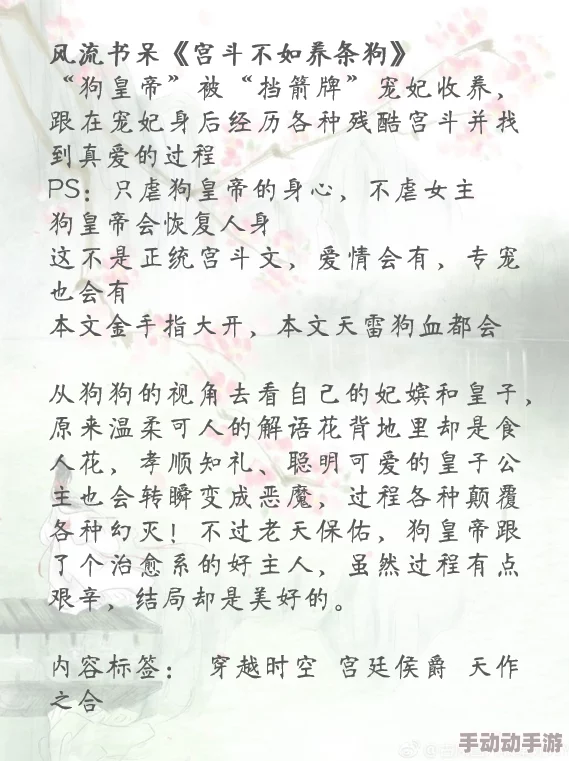 风流书呆《宫斗不如养条狗》
“狗皇帝”被“挡箭牌”宠妃收养，
跟在宠妃身后经历各种残酷宫斗并找
到真爱的过程
PS：只虐狗皇帝的身心，不虐女主
狗皇帝会恢复人身
这不是正统宫斗文，爱情会有，专宠
也会有
本文金手指大开，本文天雷狗血都会
从狗狗的视角去看自己的妃嫔和皇子，
原来温柔可人的解语花背地里却是食
人花，孝顺知礼、聪明可爱的皇子公
主也会转瞬变成恶魔，过程各种颠覆
各种幻灭！不过老天保佑，狗皇帝跟
了个治愈系的好主人，虽然过程有点
艰辛，结局却是美好的。
内容标签： 穿越时空 宫廷侯爵 天作
之合
手动动手游